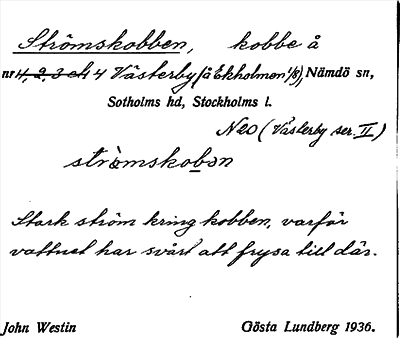 Strömskobben, kobbe å
nr 1, 2, 3 och 4 Västerby (å Ekholmen 1/8), Nämdö sn,
Sotholms hd, Stockholms l.
N20 (Västerby ser. II)
stròmskobən
Stark ström kring kobben, varför
vattnet har svårt att frysa till där.
John Westin Gösta Lundberg 1936.